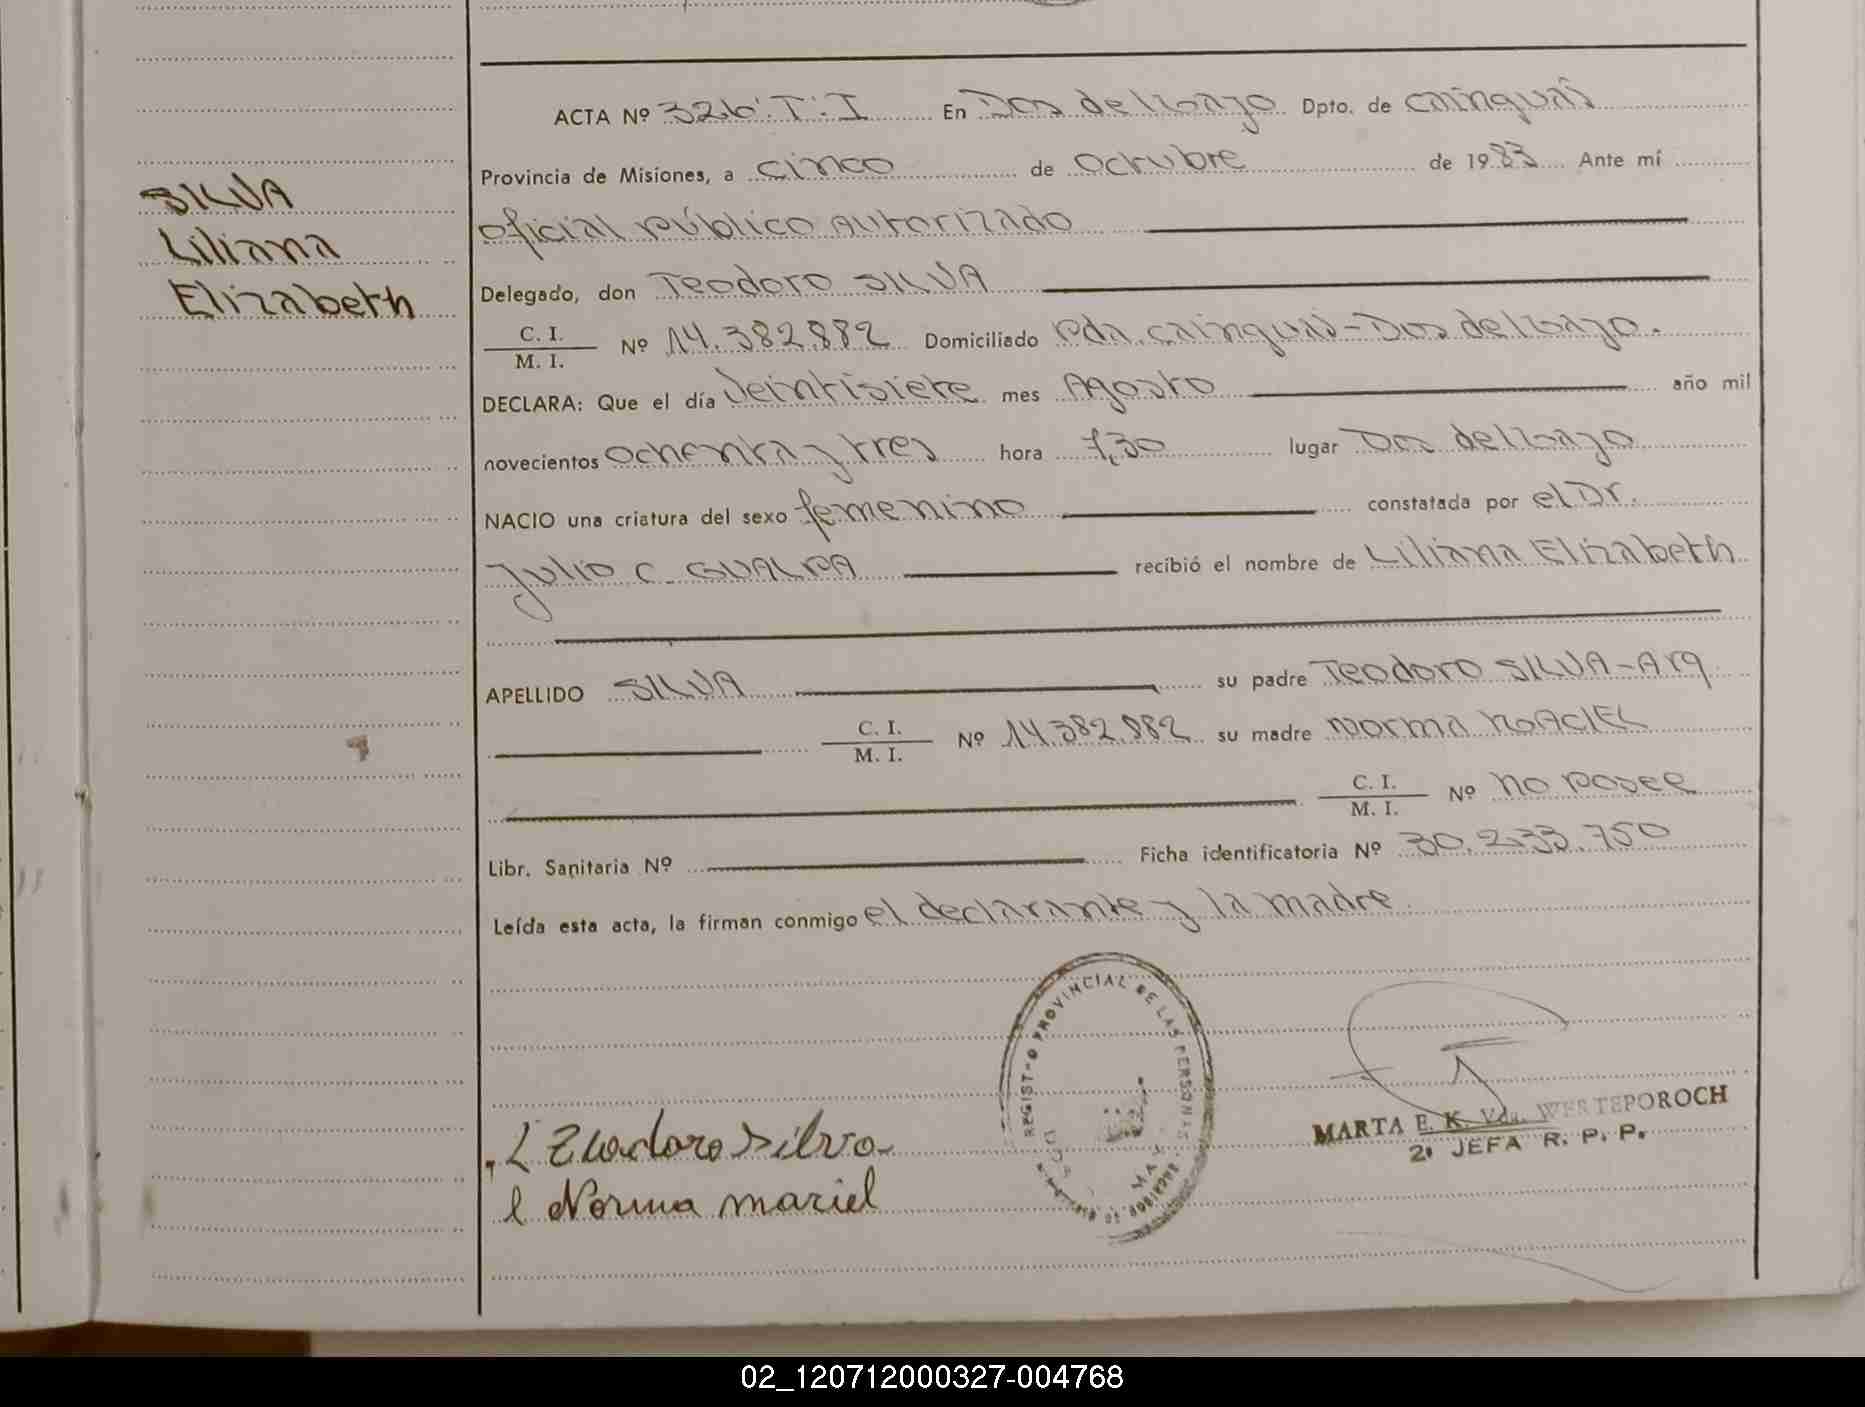 SILVA
Liliana
Elizabeth
ACTA Nº 326 T: I En Dos de Mayo Dpto. de Cainguás
Provincia de Misiones, a cinco de Octubre de 1983 Ante mí
oficial público Autorizado
Delegado, don Teodoro SILVA
C. I.
M. I. Nº 14.382.882 Domiciliado Pda. Cainguás - Dos de Mayo.
DECLARA: Que el día Veintisiete mes Agosto año mil
novecientos Ochenta y tres hora 7,30 lugar Dos de Mayo
NACIO una criatura del sexo femenino constatada por el Dr.
Julio C. GUALPA recibió el nombre de Liliana Elizabeth
APELLIDO SILVA su padre Teodoro SILVA - Arg
C. I.
M. I. Nº 14.382.882 su madre Norma MACIEL
C. I.
M. I. Nº no posee
Libr. Sanitaria Nº Ficha identificatoria Nº 30.233.750
Leída esta acta, la firman conmigo el declarante y la madre
REGISTRO PROVINCIAL DE LAS PERSONAS
MARTA E. K. Vda. WERTEPOROCH
2a JEFA R. P. P.
Teodoro Silva
Norma mariel
02_120712000327-004768